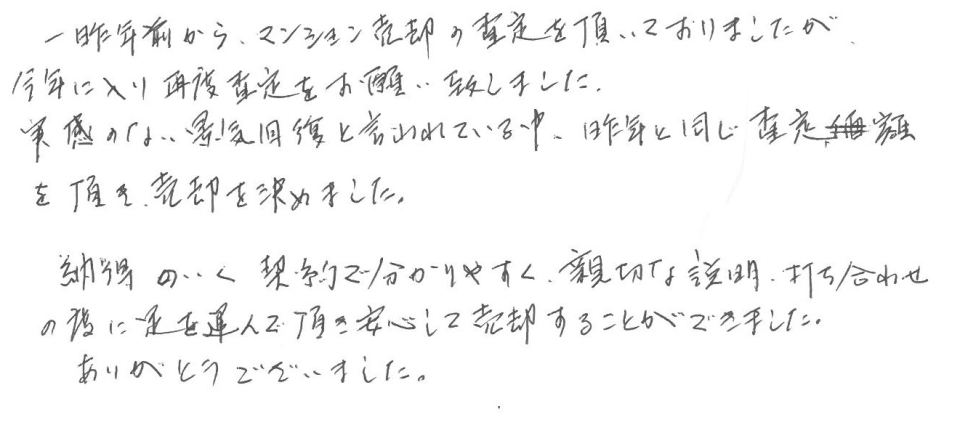 一昨年前から、マンション売却の査定を頂いておりましたが、
今年に入り再度査定をお願い致しました。
実感のない景気回復と言われている中、昨年と同じ査定額
を頂き、売却を決めました。
納得のいく契約で分かりやすく、親切な説明、打ち合わせ
の度に足を運んで頂き安心して売却することができました。
ありがとうございました。